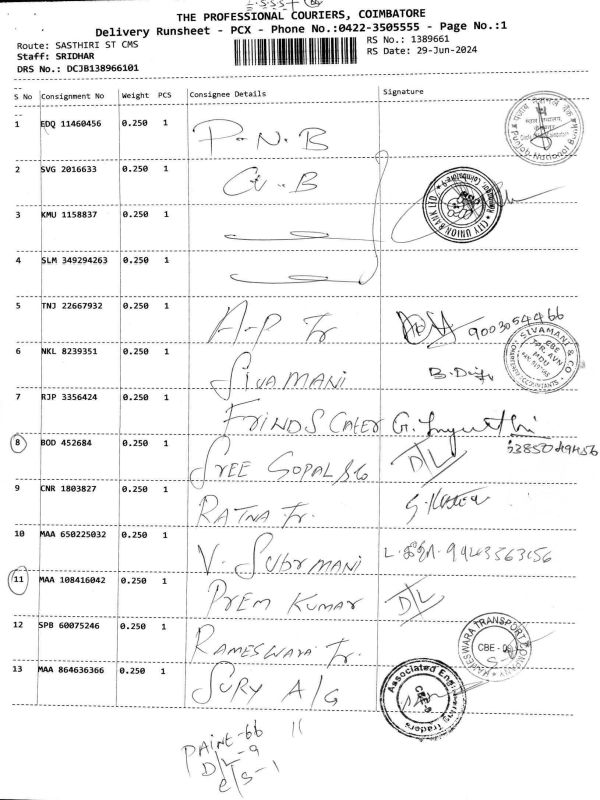 THE PROFESSIONAL COURIERS, COIMBATORE
Delivery Runsheet - PCX - Phone No.:0422-3505555 - Page No.:1
Route: SASTHIRI ST CMS
Staff: SRIDHAR
DRS No.: DCJB138966101
RS No.: 1389661
RS Date: 29-Jun-2024
S No Consignment No Weight PCS Consignee Details Signature
1 EDQ 11460456 0.250 1 P.N.B
2 SVG 2016633 0.250 1 C.U.B
CITY UNION BANK LTD
3 KMU 1158837 0.250 1
4 SLM 349294263 0.250 1
5 TNJ 22667932 0.250 1 A-P Tr 9003054466
6 NKL 8239351 0.250 1 SIVA MANI
SIVAMANI & CO
CHARTERED ACCOUNTANTS
7 RJP 3356424 0.250 1 FrinDS Cater
8 BOD 452684 0.250 1 SREE GOPAL & Co D/L
9 CNR 1803827 0.250 1 RATNA Tr.
10 MAA 650225032 0.250 1 V. SUBrMANI 9943563156
11 MAA 108416042 0.250 1 PrEM KUMAR D/L
12 SPB 60075246 0.250 1 RAMESWARA Tr.
RAMESWARA TRANSPORT COMPANY
13 MAA 864636366 0.250 1 SURY A/G
Associated Engineering Traders
PAINT-66 11
D/L-9
e/s-1